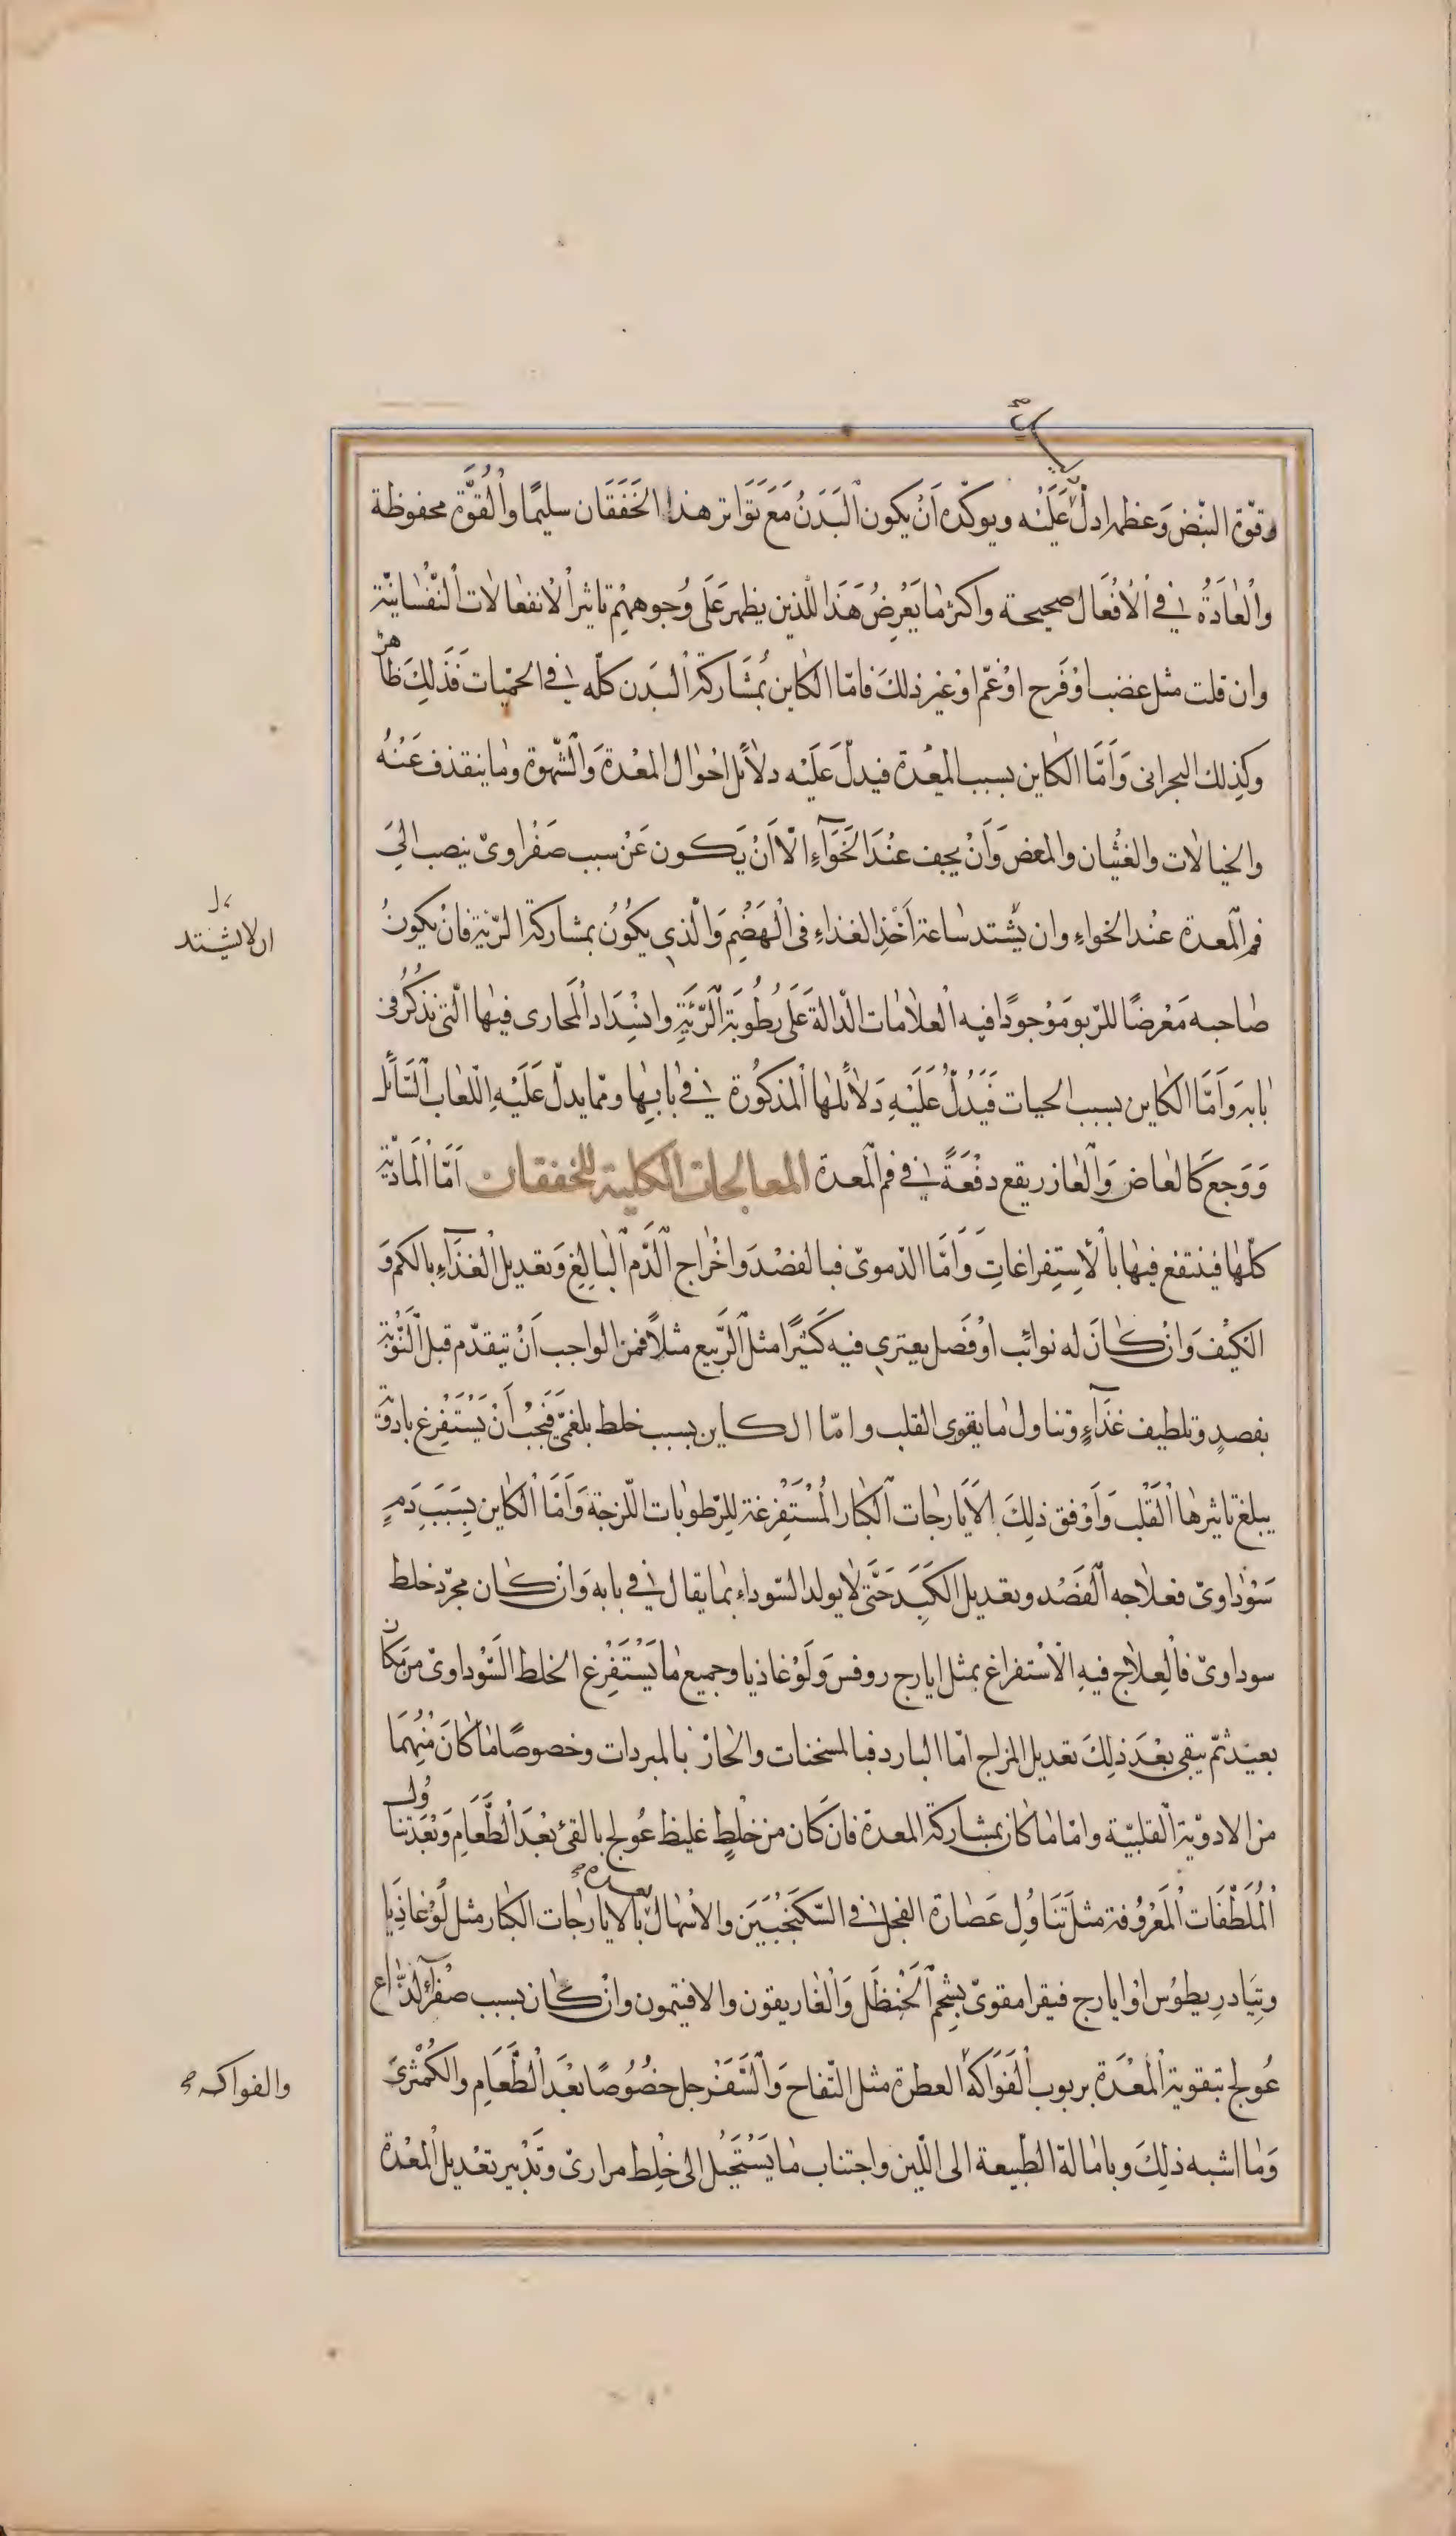 وقوّة النبّض وَعظمه ادلّ عَلَيْه ويوكّده اَنْ يكون اَلبَدَنُ مَعَ تَوَاتر هذا الخَفَقَان سليمًا واُلقوَّة محفوظة
واْلعَادَةُ في اْلاَفْعَال صحيحة واكثر مَا يَعْرِضُ هَذَا للّذين يظهر عَلَى وُجوههِمْ تاثير اْلانفعالات اْلنّفْسَانيّة
وان قلت مثل غضب اوْ فَرح اوْ غمّ اوْ غير ذلكَ فامّا الكاين بمُشَاركة اْلبدَن كلّه في الحميّات فَذَلِكَ ظاهر
وكذلك البحرانى وَاَمَّا الكاين بسبب المعْدة فيدلّ عَلَيْه دلاَئل احْوال المعْدة وَالشّهوة وما ينقذف عَنْهُ
والخيالات والغثيان والمغص وَاَنْ يجف عنْدَ الخَوَآءِ الاّ اَنْ يَكون عَنْ سبب صَفْراوىّ ينصب الىَ
فم اْلمعدة عنْد الخواءِ وان يّشتد ساعة اَخْذِ الغذاءِ فى اْلهَضْمِ وَالّذى يكوُنُ بمشاركة الرّئة فانْ يكونُ
صاحبه مَعْرضًا للرّبو مَوْجودًا فيه اْلعلامات الدّالة عَلَى رُطُوبَة اَلرَّئَةِ وانْسِدَاد اْلمَجارى فيها الّتى نذكُرُ فى
بابه وَاَمَّا الكاين بسبب الحيات فَيَدُلّ عَلَيْهِ دَلاَئلها اْلمذكُورة في بابها وممّا يدلّ عَلَيْهِ اللّعاب اَلسَّائل
وَوَجع كالعاض وَاْلغارز يقع دفْعَةً في فم اْلمعدة المعالجات الكلية للخفقان اَمَّا اْلمَاديّة
كلّها فينتفع فيها باْلاِستِفراغاتِ وَاَمَّا الدّموىّ فبالفصْد وَاخْراج اَلدَّم اْلبالِغ وَتعديل الغذَآءِ بالكم وَ
الكيْف وَانْ كانَ له نوائب اوْ فَصل يعترى فيه كَثيرًا مثل اَلرَّبيع مثلاً فمن الواجب اَنْ يتقدّم قبل اْلنَّوْبة
بفصدٍ وتلطيف غذَآءٍ وتناول ما يقوى القلب وامّا الكاين بسبب خلط بلغمىّ فَيَجبُ اَنْ يَسْتَفْرِغ بادْوية
يبلغ تاثيرها اْلقَلْب وَاَوْفق ذلِكَ اْلاَيَارجات اْلكبار اْلمُسْتَفْرغة للِرّطوبات اللّزجة وَاَمَّا اْلكاين بِسَبَبِ دَمٍ
سَوْداوىّ فعلاجه اْلفَصْد وتعديل الكَبَد حَتَّى لا يولد السّوداء بما يقال في بابه وَان كان مجرّد خلط
سوداوىّ فالْعلاج فيهِ الاْستفراغ بمثل ايارج روفسَ وَلَوْغاذيا وجميع ما يَسْتَفْرِغ الخلط السَّوْداوىّ من مكان
بعيْد ثمّ يبقى بعْدَ ذلِكَ تعديل المزاج امّا البارد فبالمسخنات والحارّ بالمبردات وخصوصًا ما كانَ مْنهمَا
من الادوّية القلبيّة وامّا ما كان بمشاركة المعدة فان كَان من خلْطٍ غليظ عُولج بالقئ بعْدَ الطَّعَام وَبعْدَ تناوُل
اْلمُلَطْفَات اْلمَعْروُفة مثل تَنَاوُلِ عَصَارة الفجل في السّكَنجُبَيَن والاسْهَال بعده بالايارجات الكبار مثل لَوْغاذِيا
وتِيَادرِيطوُس اوْ ايارج فيقرا مقوىّ بشحِم اْلحَنْظَل وَاْلغاريقون والافتيمون وانْ كان بسبب صفْرآء لذَّاع
عُولج بتقوية اْلمْعَدَة بربوب اْلفَوَاكه العطرة مثل التّفاح وَالسَّفَرجل خصُوُصًا بَعْدَ اْلطَّعَام والكُمثْرىَ
وَما اشبه ذلِكَ وبامالة الطّبيعة الى اللّين واجتناب ما يَسْتَحيْل الى خْلِط مرارىّ وَتَدْبير تعْديل اْلمعْدة
او لا يشتد
والفواكه صح